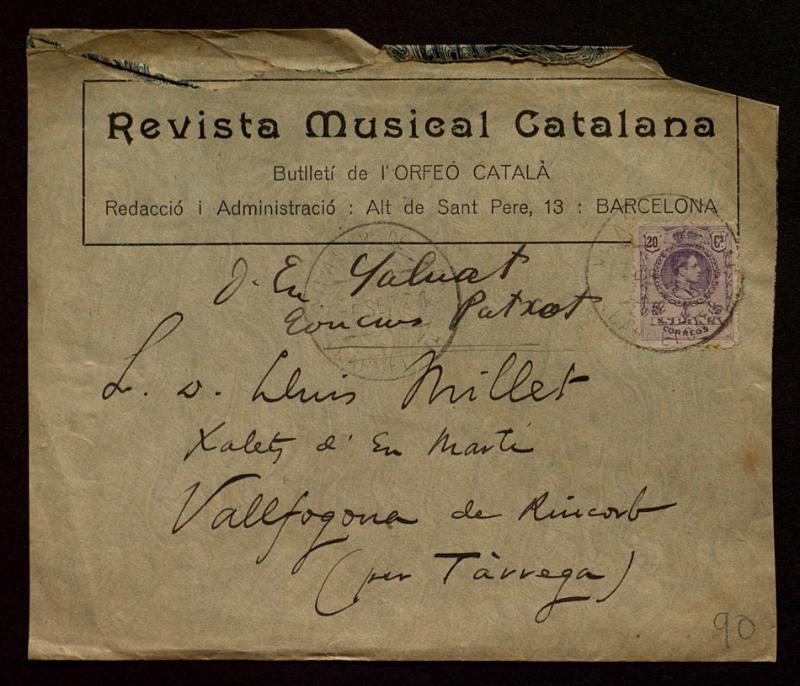 Revista Musical Catalana
Butlletí de l'ORFEÓ CATALÀ
Redacció i Administració : Alt de Sant Pere, 13 : BARCELONA
20 Cs
CORREOS
Patxot
L. D. Lluis Millet
Xalets d' En Martí
Vallfogona de Riucorb
(per Tàrrega)
90